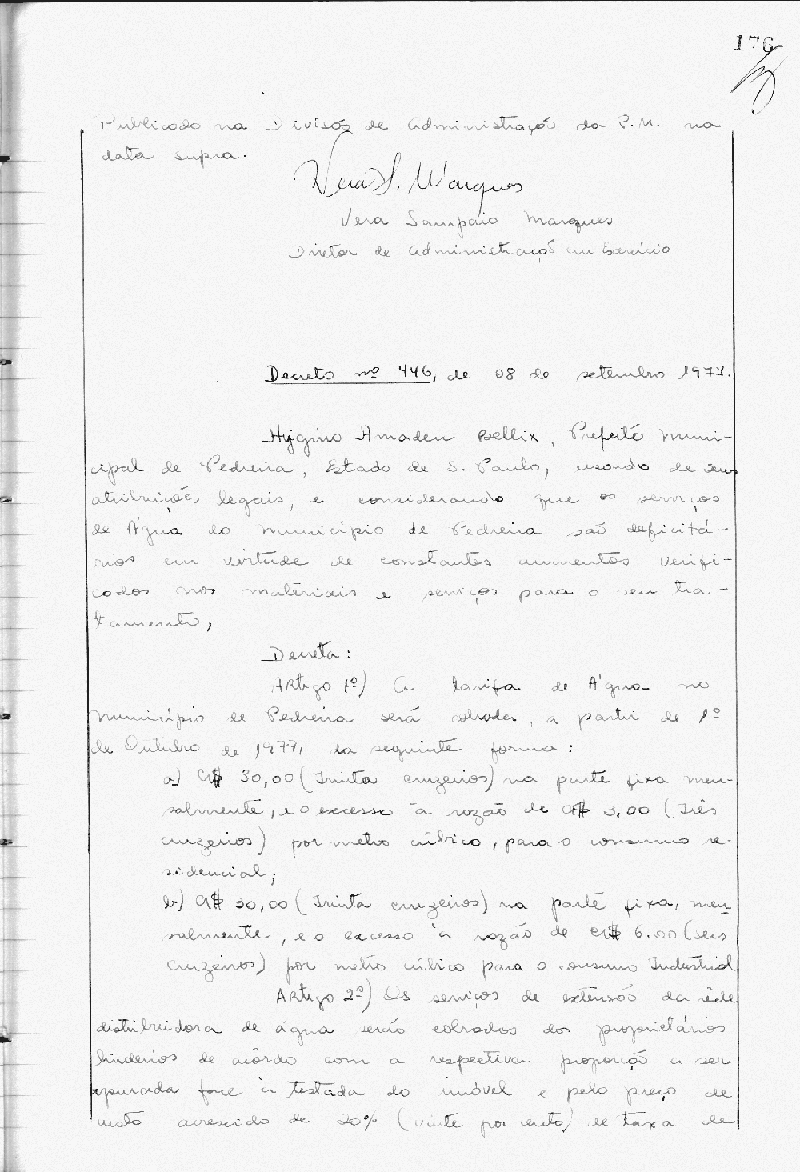 176
Publicado na Divisão de Administração da P.M. na
data supra.
Vera S. Marques
Vera Sampaio Marques
Diretor de Administração em Exercício
Decreto nº 446, de 08 de setembro 1977.
Hygino Amadeu Bellix, Prefeito Muni-
cipal de Pedreira, Estado de S. Paulo, usando de seus
atribuições legais, e considerando que os serviços
de Água do Município de Pedreira são deficitá-
rios em virtude de constantes aumentos verifi-
cados nos materiais e serviços para o seu tra-
tamento,
Decreta:
Artigo 1º) A tarifa de Água no
Município de Pedreira será cobrada, a partir de 1º
de Outubro de 1977, da seguinte forma:
a) CR$ 30,00 (Trinta cruzeiros) na parte fixa men-
salmente, e o excesso à razão de CR$ 3,00 (Três
cruzeiros) por metro cúbico, para o consumo re-
sidencial;
b) CR$ 30,00 (Trinta cruzeiros) na parte fixa, men-
salmente, e o excesso à razão de CR$ 6.00 (seis
cruzeiros) por metro cúbico para o consumo Industrial
Artigo 2º) Os serviços de extensão da rêde
distribuidora de água serão cobrados dos proprietários
lindeiros de acôrdo com a respectiva proporção a ser
apurada face à testada do imóvel e pelo preço de
custo acrescido de 20% (vinte por cento) de taxa de